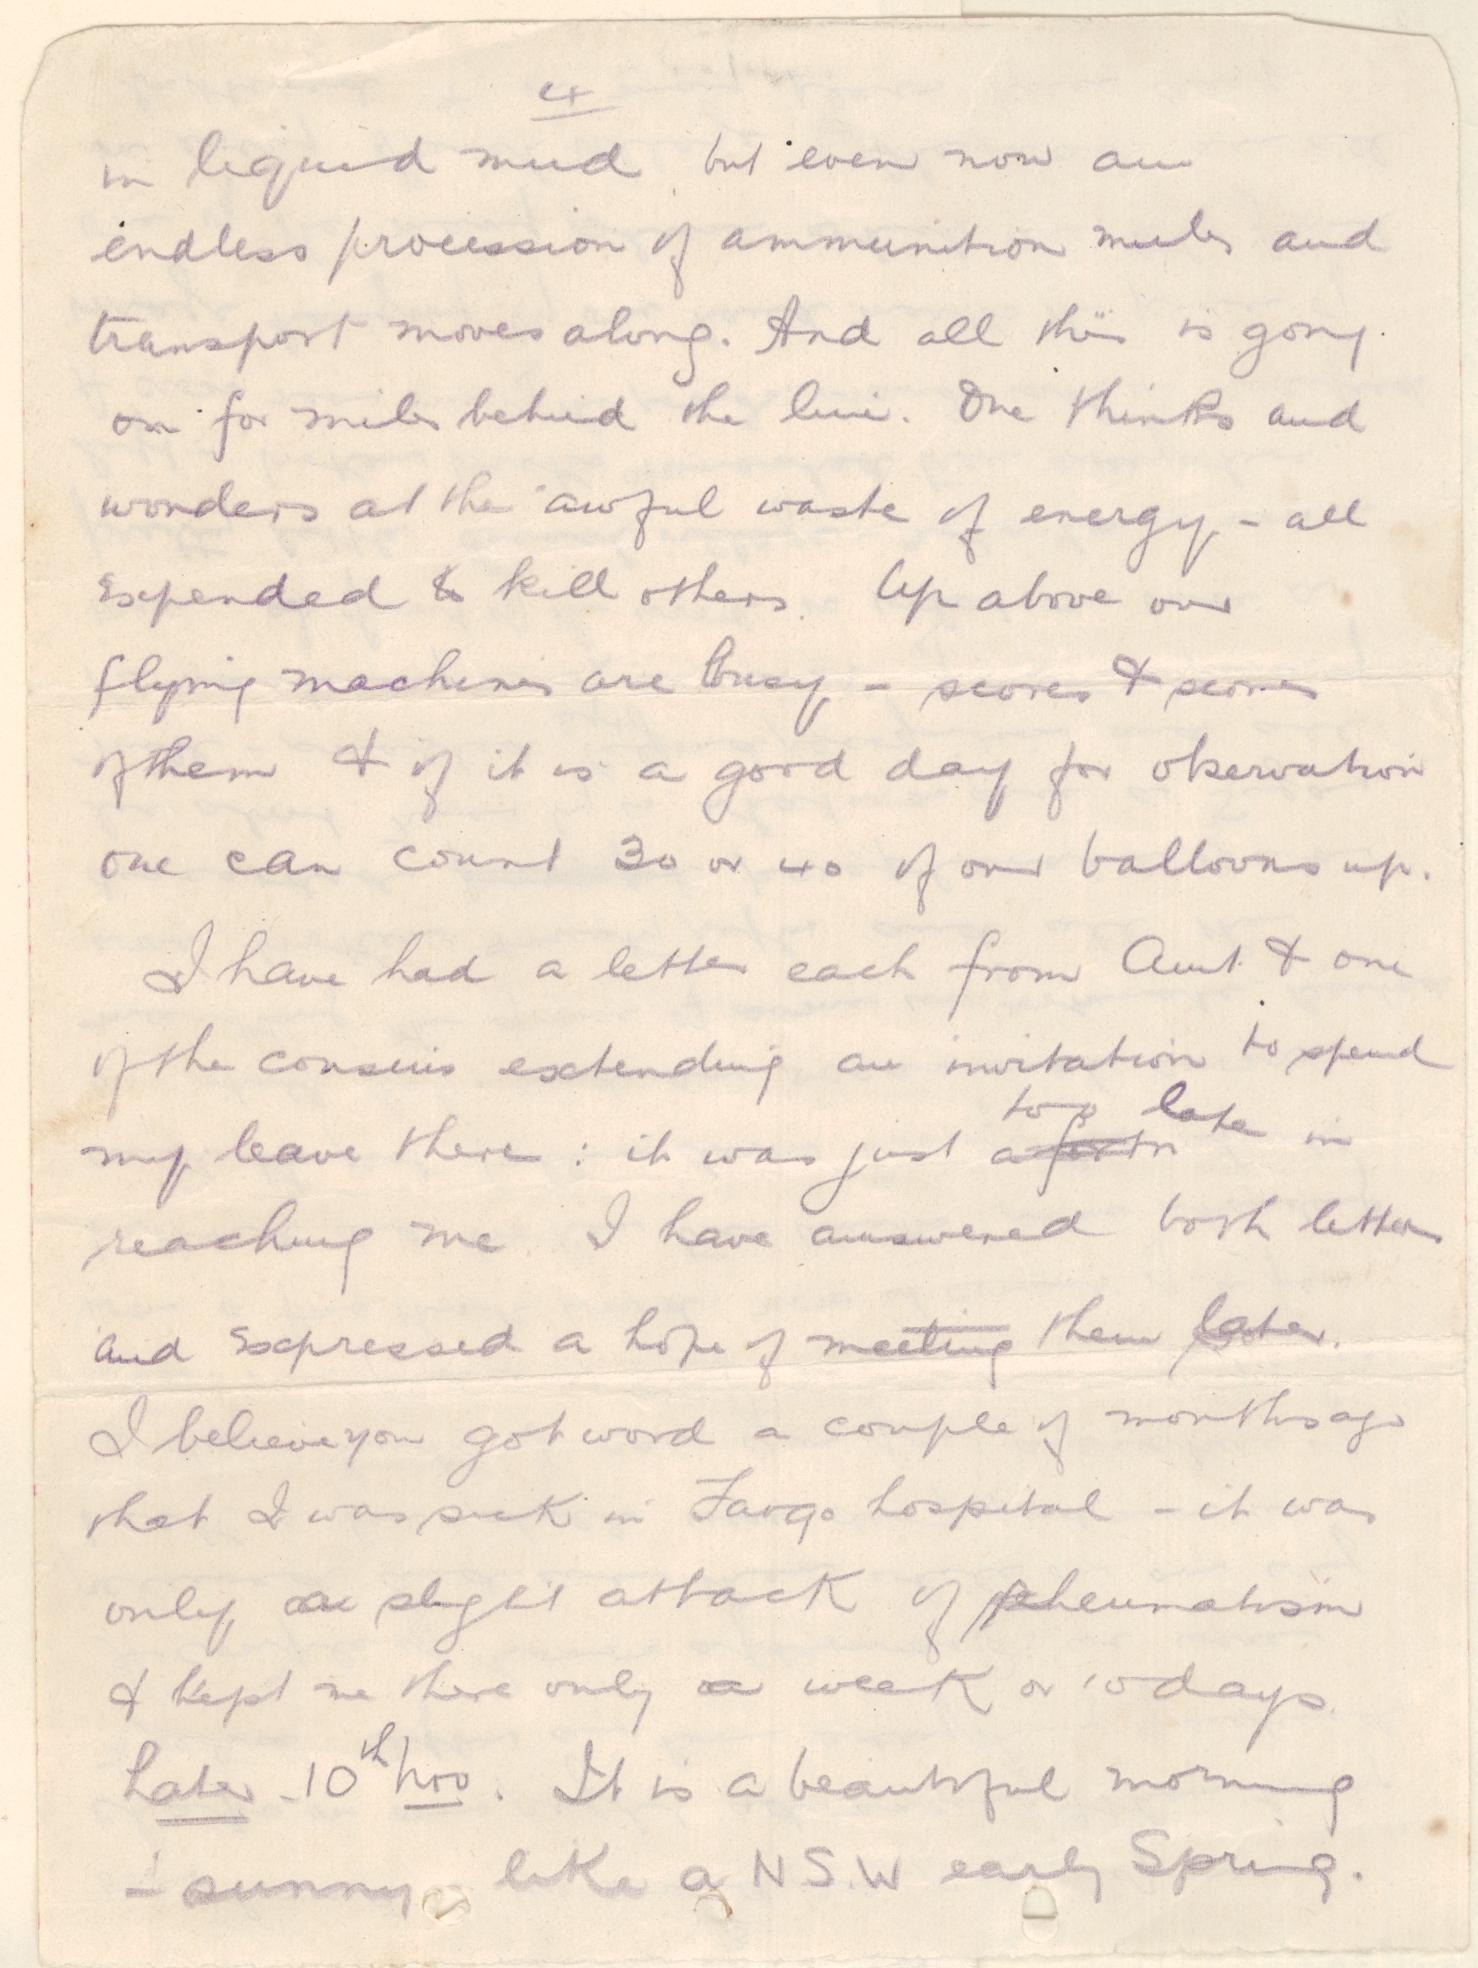 4
in liquid mud, but even now an
endless procession of ammunition mules and
transport moves along. And all this is going
on for miles behind the line. One thinks and
wonders at the awful waste of energy, – all
expended to kill others. Up above our
flying machines are busy, – scores & scores
of them & if it is a good day for observation
one can count 30 or 40 of our balloons up.
I have had a letter each from Aunt & one
of the cousins extending an invitation to spend
too late
my leave there: it was just a in
reaching me. I have answered both letters
and expressed a hope of meeting them later.
I believe you got word a couple of months ago
that I was sick in Fargo hospital – it was
only a slight attack of rheumatism
& kept me there only a week or 10 days.
Later – 10th Nov. It is a beautiful morning
– sunny like a N.S.W early Spring.